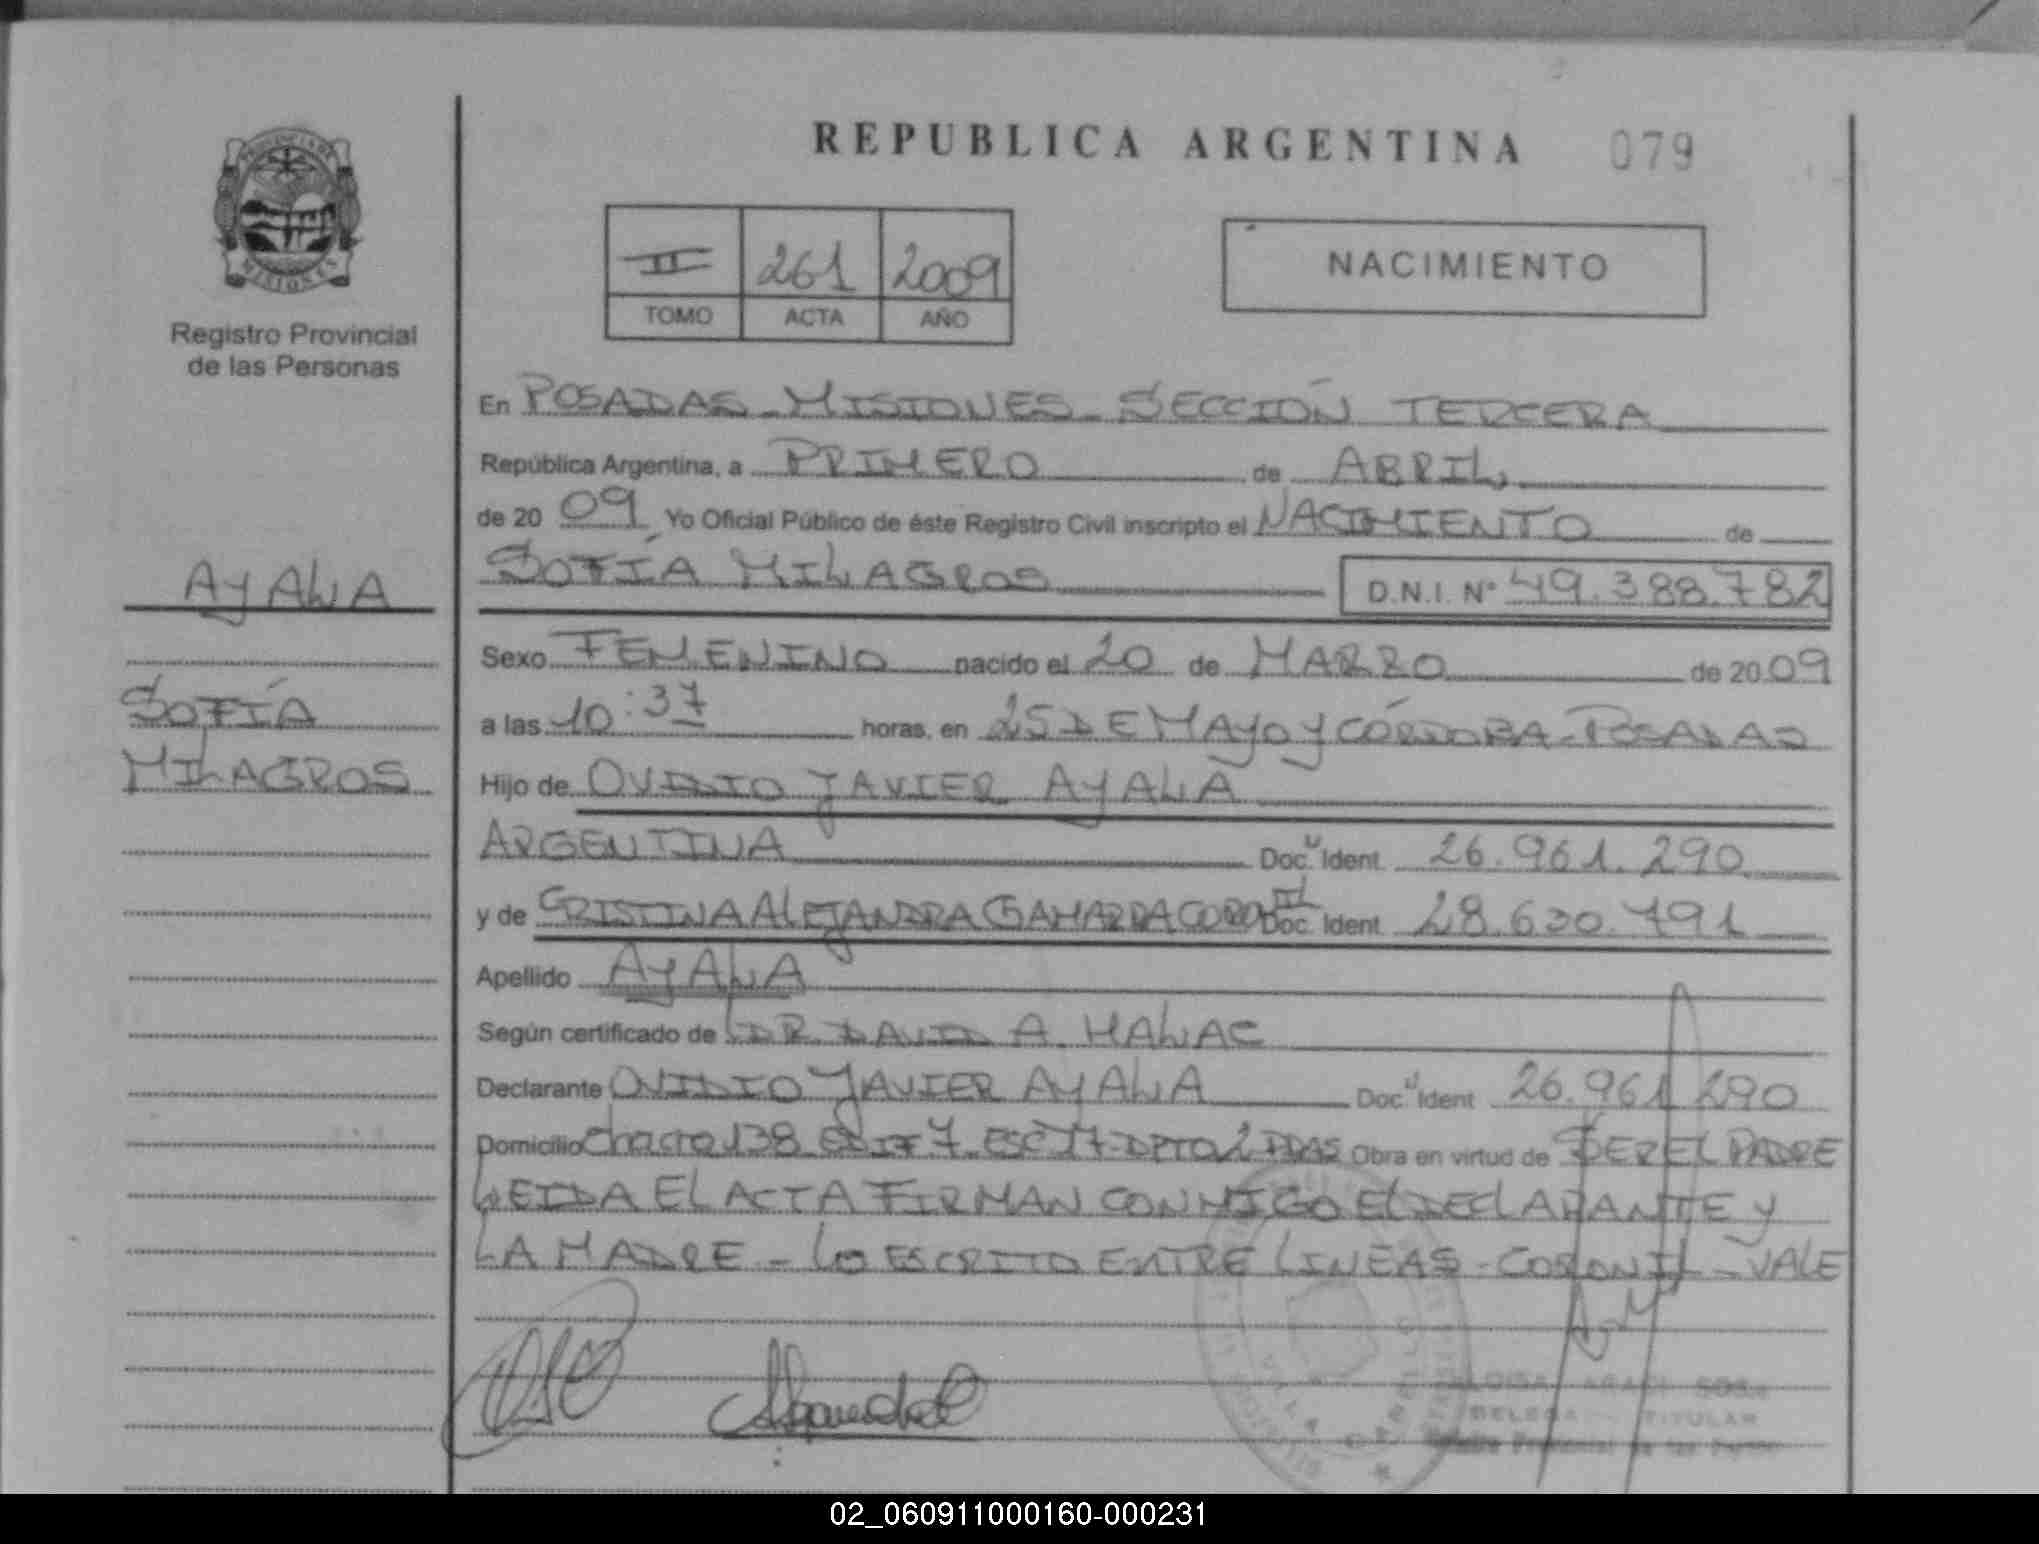 REPUBLICA ARGENTINA 079
PROVINCIA DE
MISIONES
Registro Provincial
de las Personas
II 261 2009
TOMO ACTA AÑO
NACIMIENTO
En POSADAS - MISIONES - SECCIÓN TERCERA
República Argentina, a PRIMERO de ABRIL
de 20 09 Yo Oficial Público de éste Registro Civil inscripto el NACIMIENTO de
SOFÍA MILAGROS D.N.I. Nº 49.388.782
AYALA
SOFÍA
MILAGROS
Sexo FEMENINO nacido el 20 de MARZO de 20 09
a las 10:37 horas, en 25 DE MAYO Y CÓRDOBA - POSADAS
Hijo de OVIDIO JAVIER AYALA
ARGENTINA Doc. U Ident 26.961.290
y de CRISTINA ALEJANDRA GAMARRA CORONIL Doc. Ident 28.630.791
Apellido AYALA
Según certificado de DR. DAVID A. MALJAC
Declarante OVIDIO JAVIER AYALA Doc. U Ident 26.961.290
Domicilio Chacra 138 EDIF 7 ESC 17 - DPTO 2 PDAS Obra en virtud de SER EL PADRE
LEIDA EL ACTA FIRMAN CONMIGO EL DECLARANTE Y
LA MADRE - LO ESCRITO ENTRE LINEAS - CORONIL - VALE
ARACI SOSA
TITULAR
02_060911000160-000231